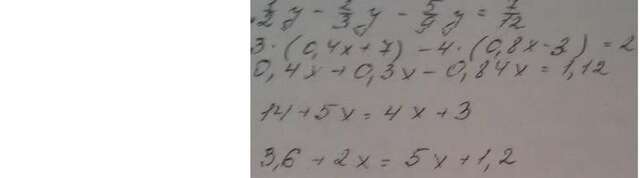 1/2 y - 2/3 y - 5/9 y = 7/12
3·(0,4x+7) - 4·(0,8x-3) = 2
0,4x+0,3x-0,84x=1,12
14+5x=4x+3
3,6+2x=5x+1,2